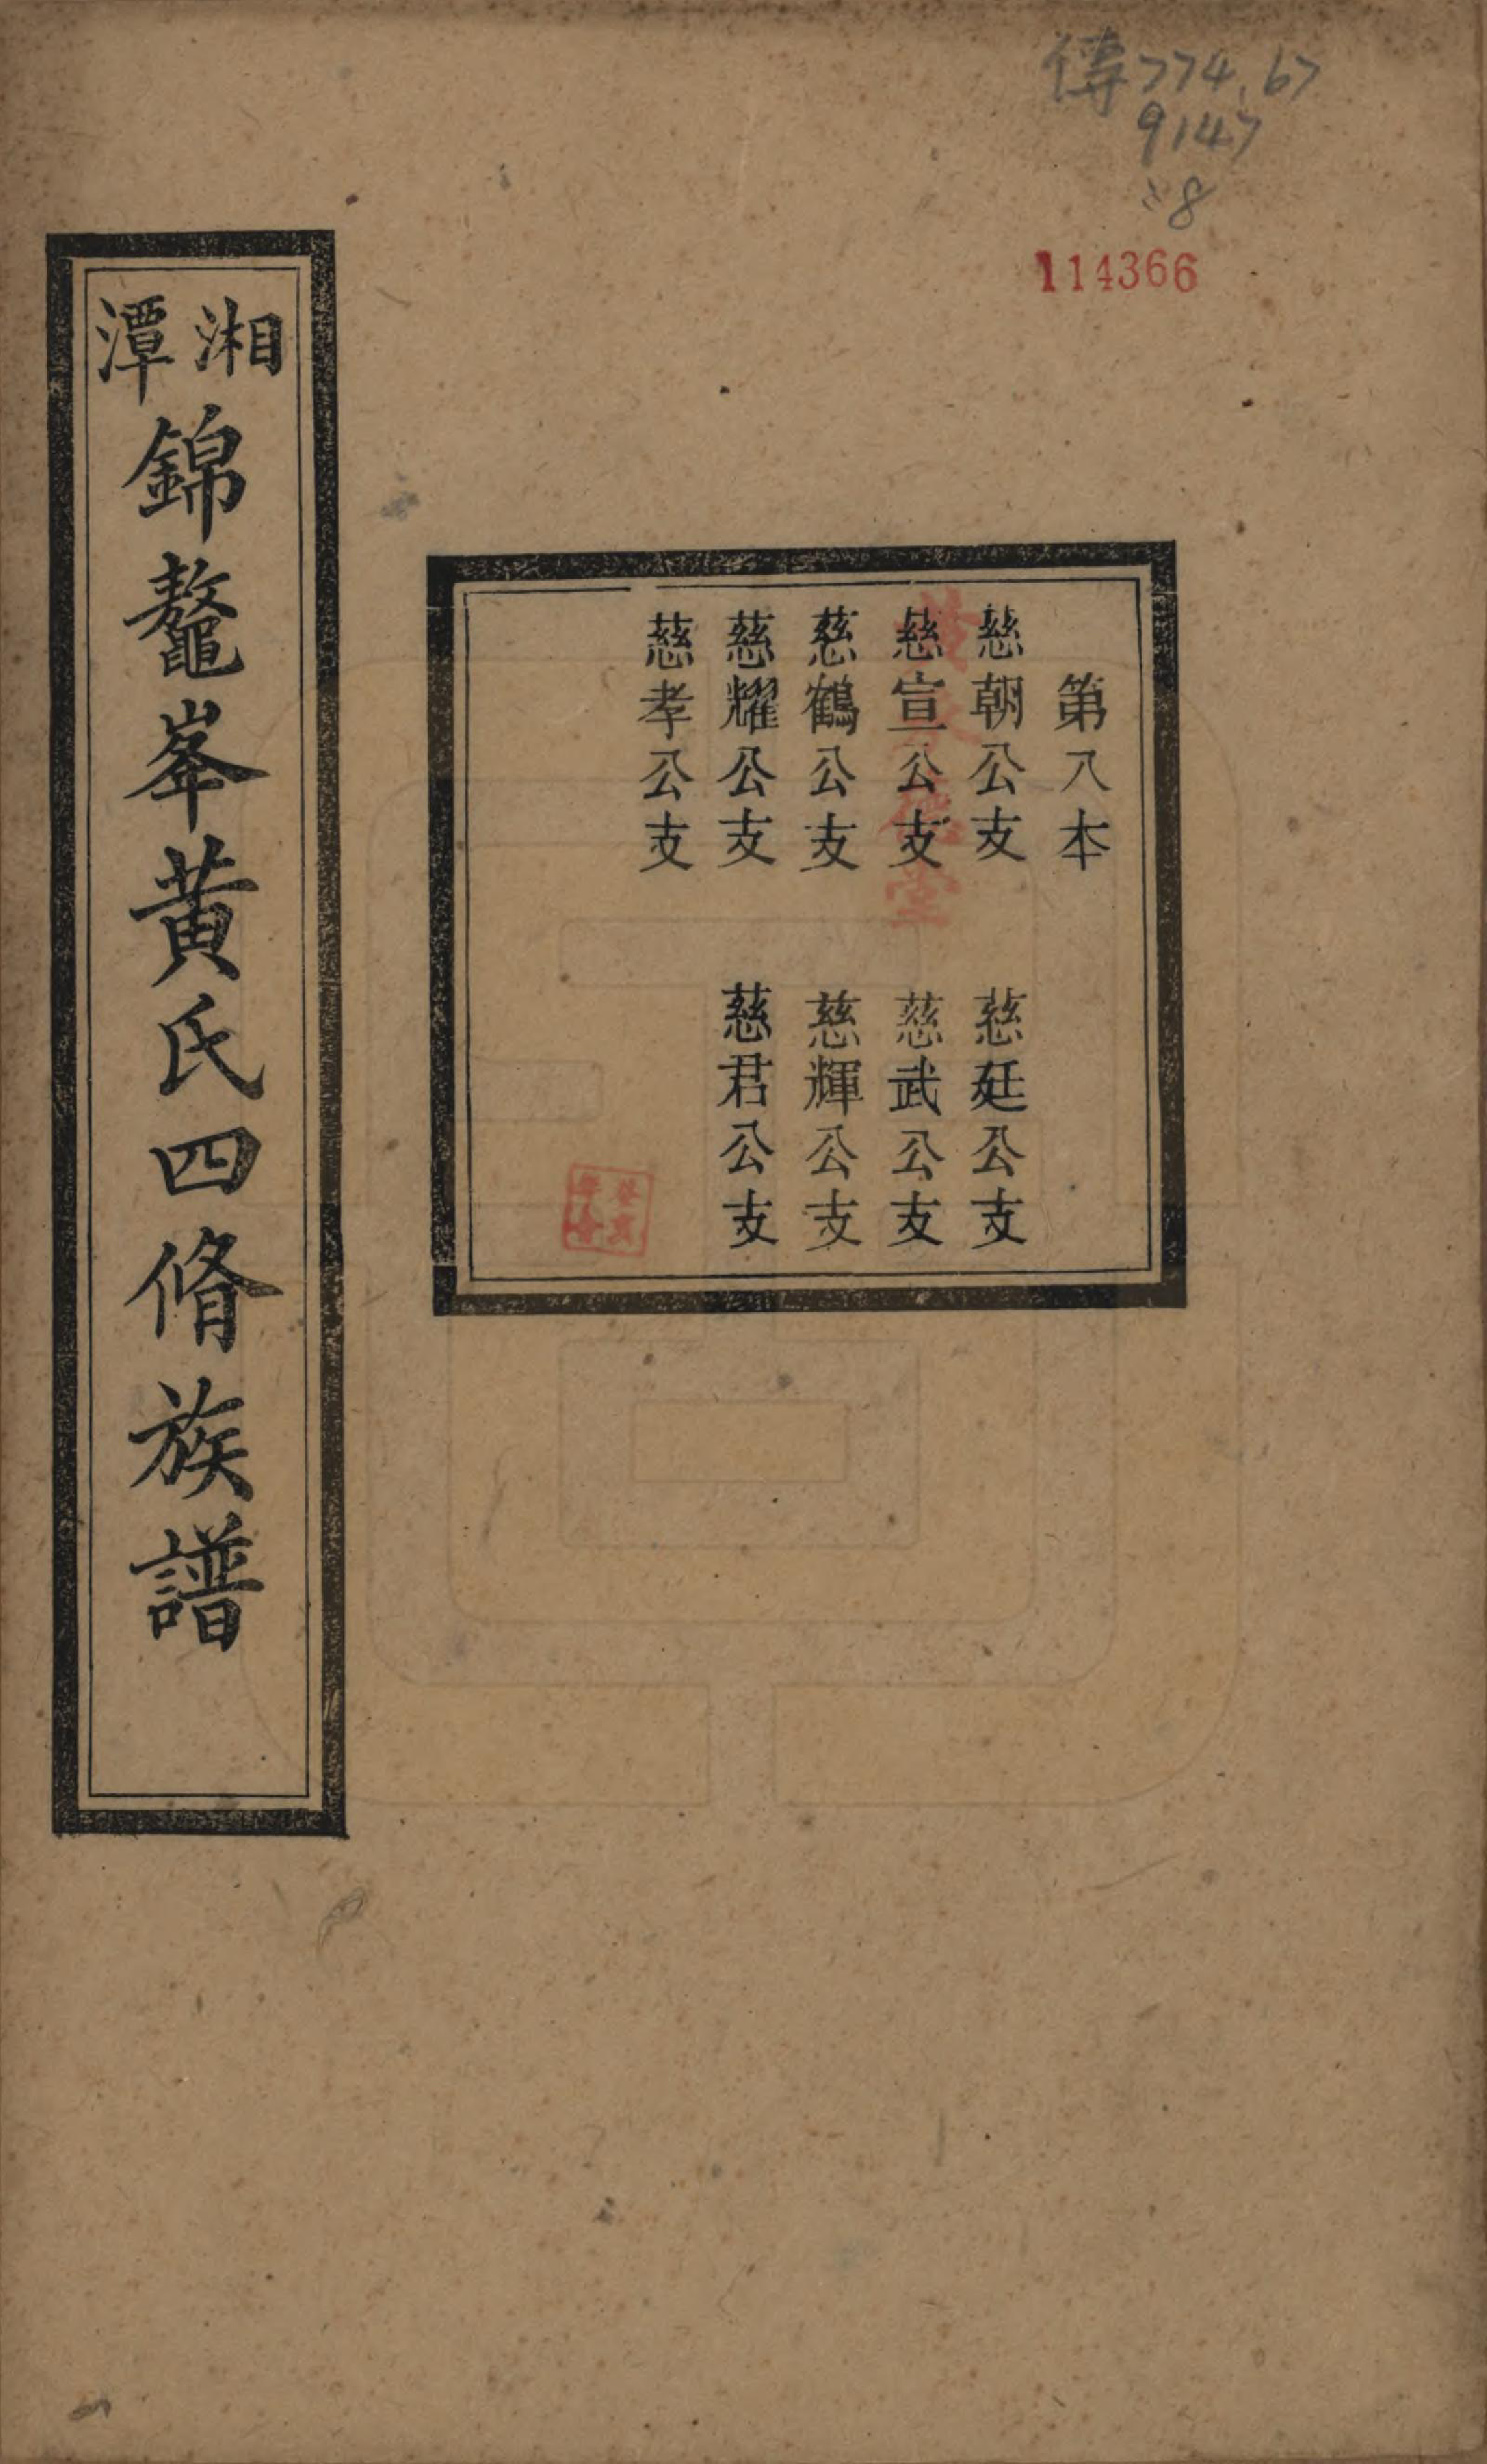 傳774.67
9147
:8
114366
第八本
慈朝公支
慈廷公支
慈宣公支
慈武公支
慈鶴公支
慈輝公支
慈耀公支
慈君公支
慈孝公支
湘潭
錦鼇峯黃氏四脩族譜